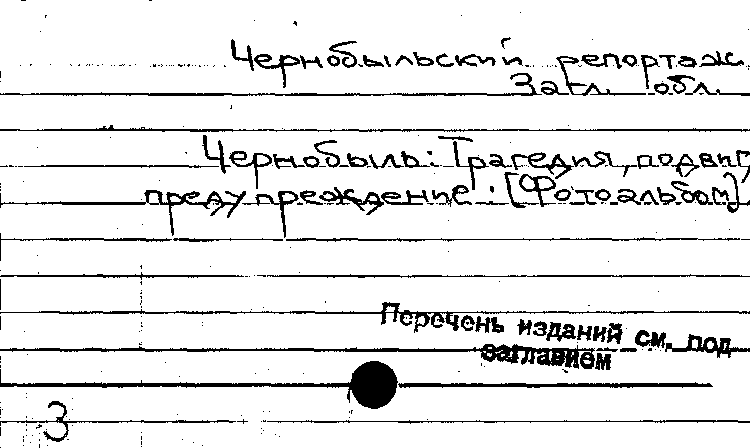 Чернобыльский репортаж
Загл. обл.
Чернобыль: Трагедия, подвиг,
предупреждение: [Фотоальбом]
Перечень изданий см. под
заглавием
3